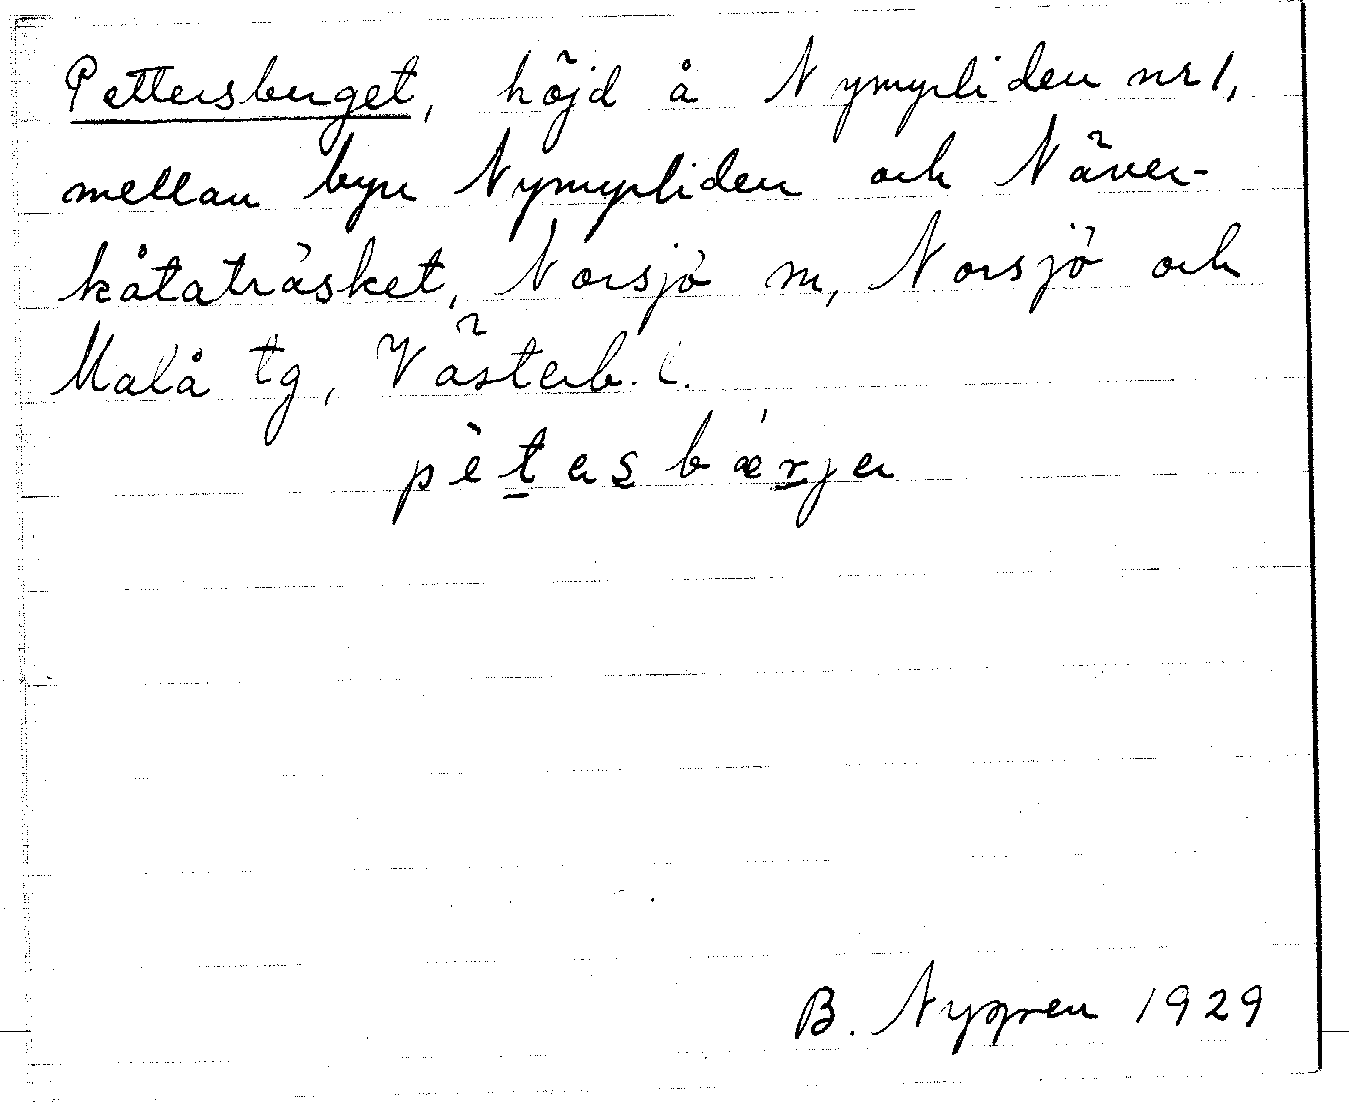 Pettersberget, höjd å Nymyrliden nr 1,
mellan byn Nymyrliden och Näver-
kåtaträsket, Norsjö sn, Norsjö och
Malå tg, Västerb. l.
pètesbǽrjen
B. Nygren 1929